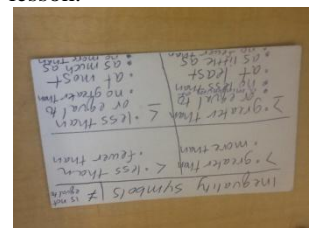 lesson.
Inequality Symbols
≠ is not equal to
> • greater than
• more than
< • less than
• fewer than
≥ • greater than or equal to
• no less than
• at least
• as little as
• no fewer than
≤ • less than or equal to
• no greater than
• at most
• as much as
• no more than